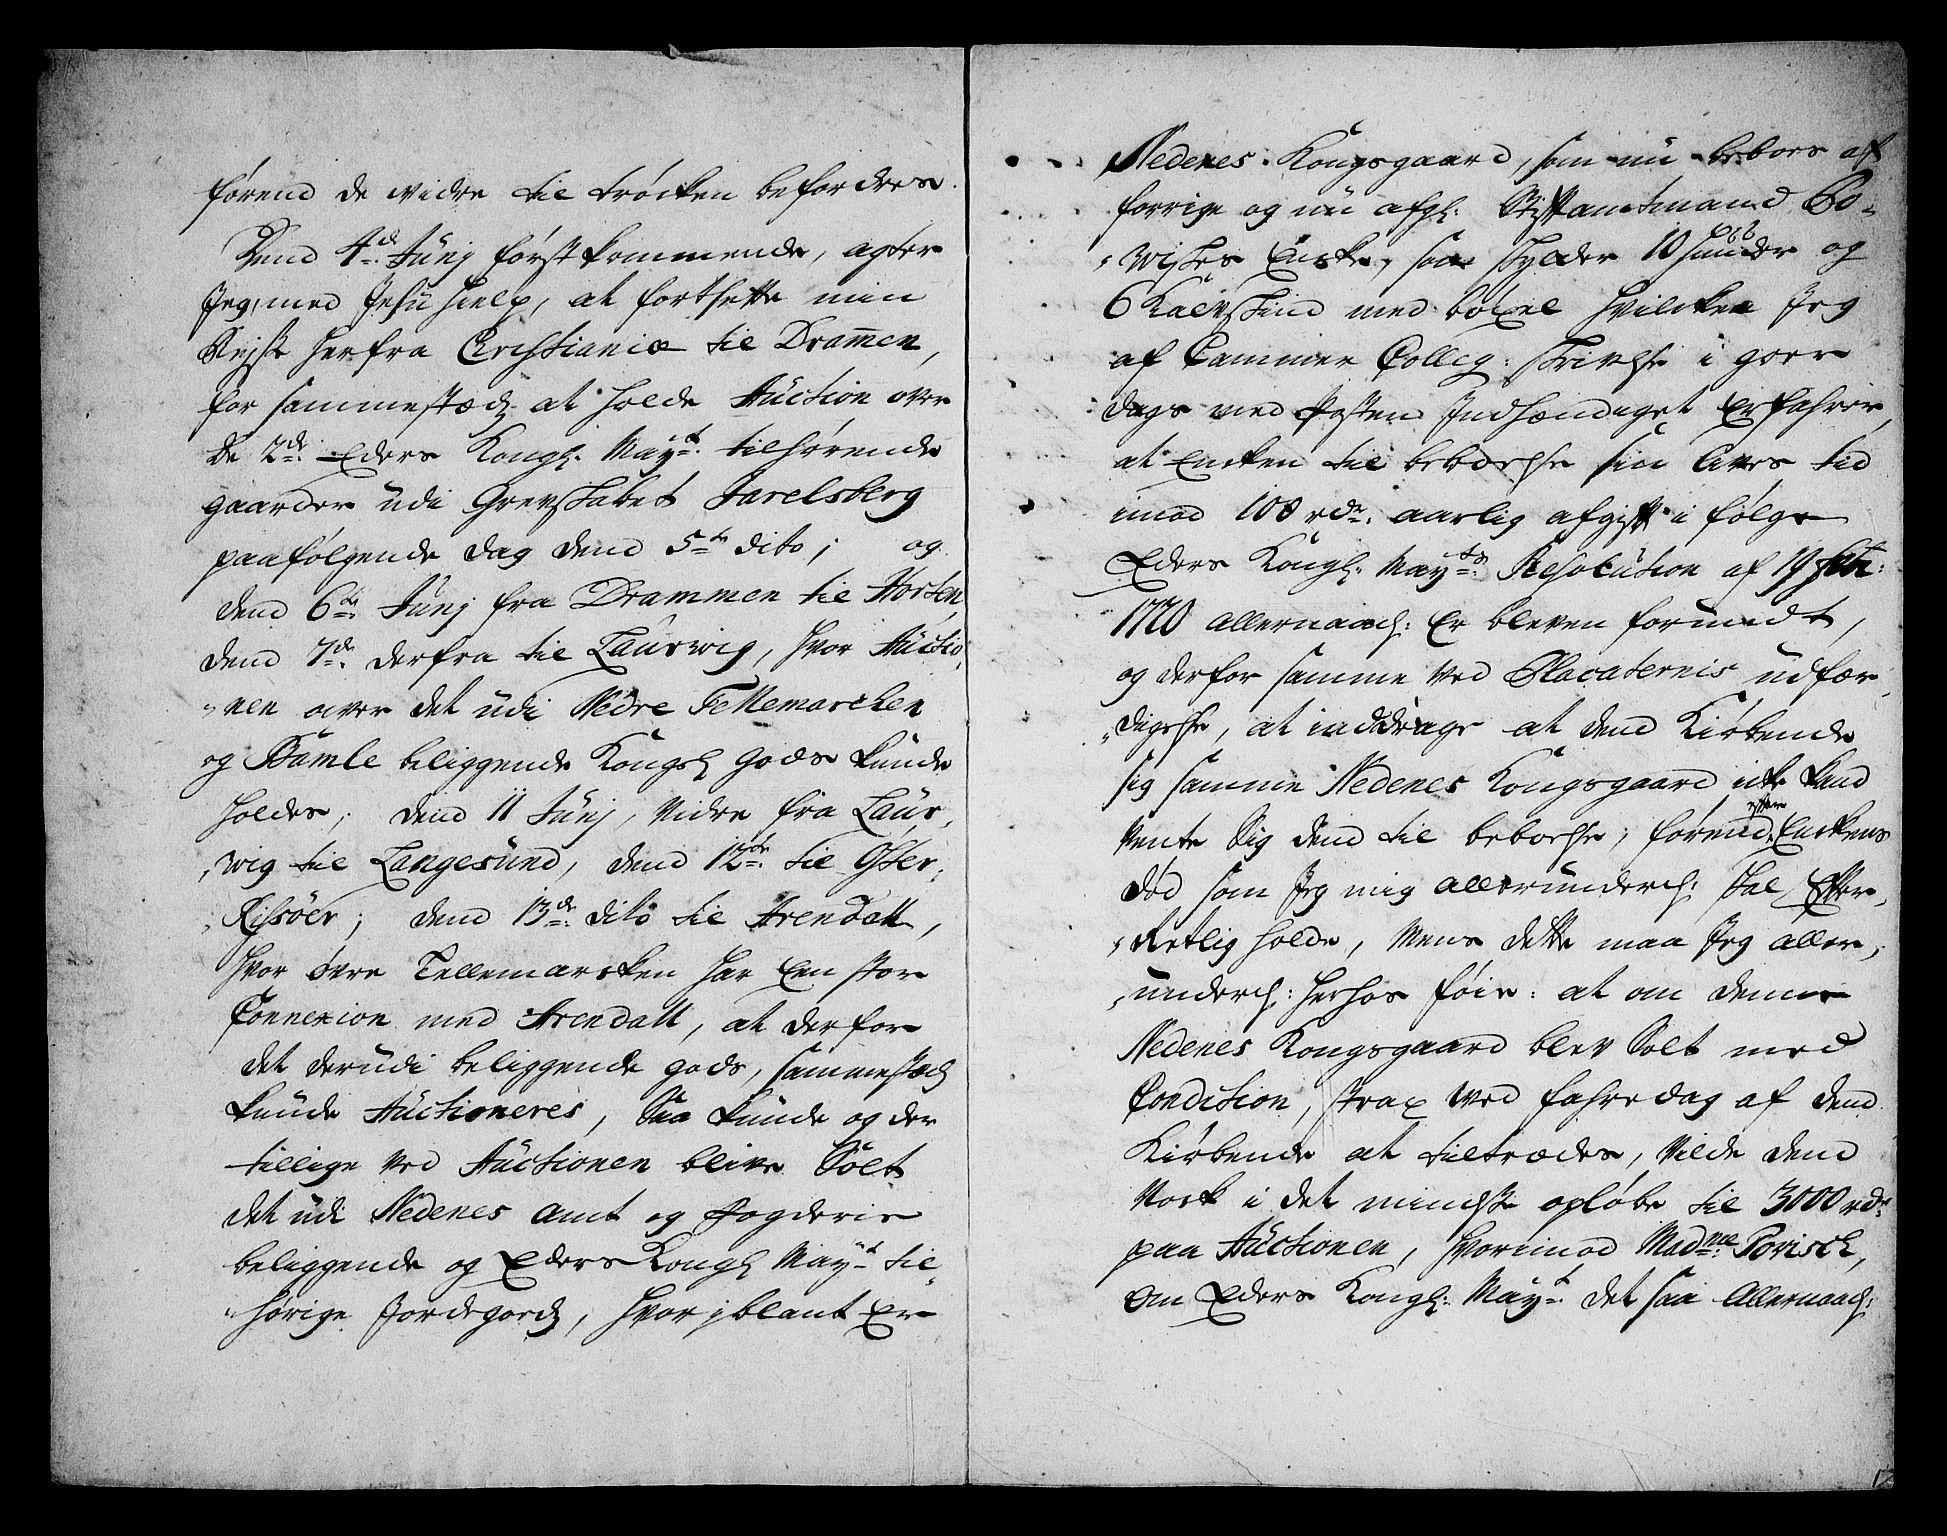 førend de widre til trycken befordres.
Dend 4de Junj først kommende, agter
Jeg, med Jesu Hielp, at fortsette min
Rejse herfra Cristiania til Drammen,
for sammestæds at holde Auction over
de 2de Eders Kongl. Mayts. tilhørende
gaarder udi Grevskabet Jarelsberg
paafølgende dag dend 5te dito; og
dend 6te Junj fra Drammen til Horten
dend 7de derfra til Laurwig, hvor Auctio-
-nen over det udi Nedre Tellemarcken
og Bamle beliggende Kongl gods kunde
holdes; dend 11 Junj, vidre fra Laur-
-wig til Langesund, dend 12te til Øster-
-Rissøer; dend 13de dito til Arendall,
hvor øvre Tellemarcken har Een stor
Connexion med Arendall, at derfor
det derudi beliggende gods, sammestæds
kunde Auctioneres, Saa kunde og der
tillige ved Auctionen blive Solt
det udi Nedenes amt og fogderie
beliggende og Eders Kongl Mayt til-
-hørige Jordegods, hvor iblant Er
Nedenes Kongsgaard, som nu beboes af
forrige og nu afgl: Stiftamtmand Po-
-wishes Encke, som skylder 10 huuder og
6 Kalvskind med bøxel hvilcken Jeg
af Cammer Colleg: skrivelse i goer
dags med Posten Indhændiget Erfahrer,
at Encken til beboelse sin Lives tid
imod 100 rdr. aarlig afgift i følge
Eders Kongl. Mayts Resolution af 19
1720 allernaad: Er bleven formeedt,
og derfor samme ved Placaternis udfær-
-digelse, at inddrage at dend Kiøbende
sig samme Nedenes Kongsgaard icke kand
vente Sig dend til beboelse, førend efter Enckens
død som Jeg mig allerunderd: skal Efter-
-retlig holde, Mens dette maa Jeg aller-
-underd: herhos føie: at om denne
Nedenes Kongsgaard blev Solt med
Condition, strax ved fahredag af dend
Kiøbende at tiltrædes, vilde dend
vørk i det mindste opløbe til 3000 rdr
paa Auctionen, hvorimod Madme Povisch,
om Eders Kongl: Mayt. det saa Allernaad: